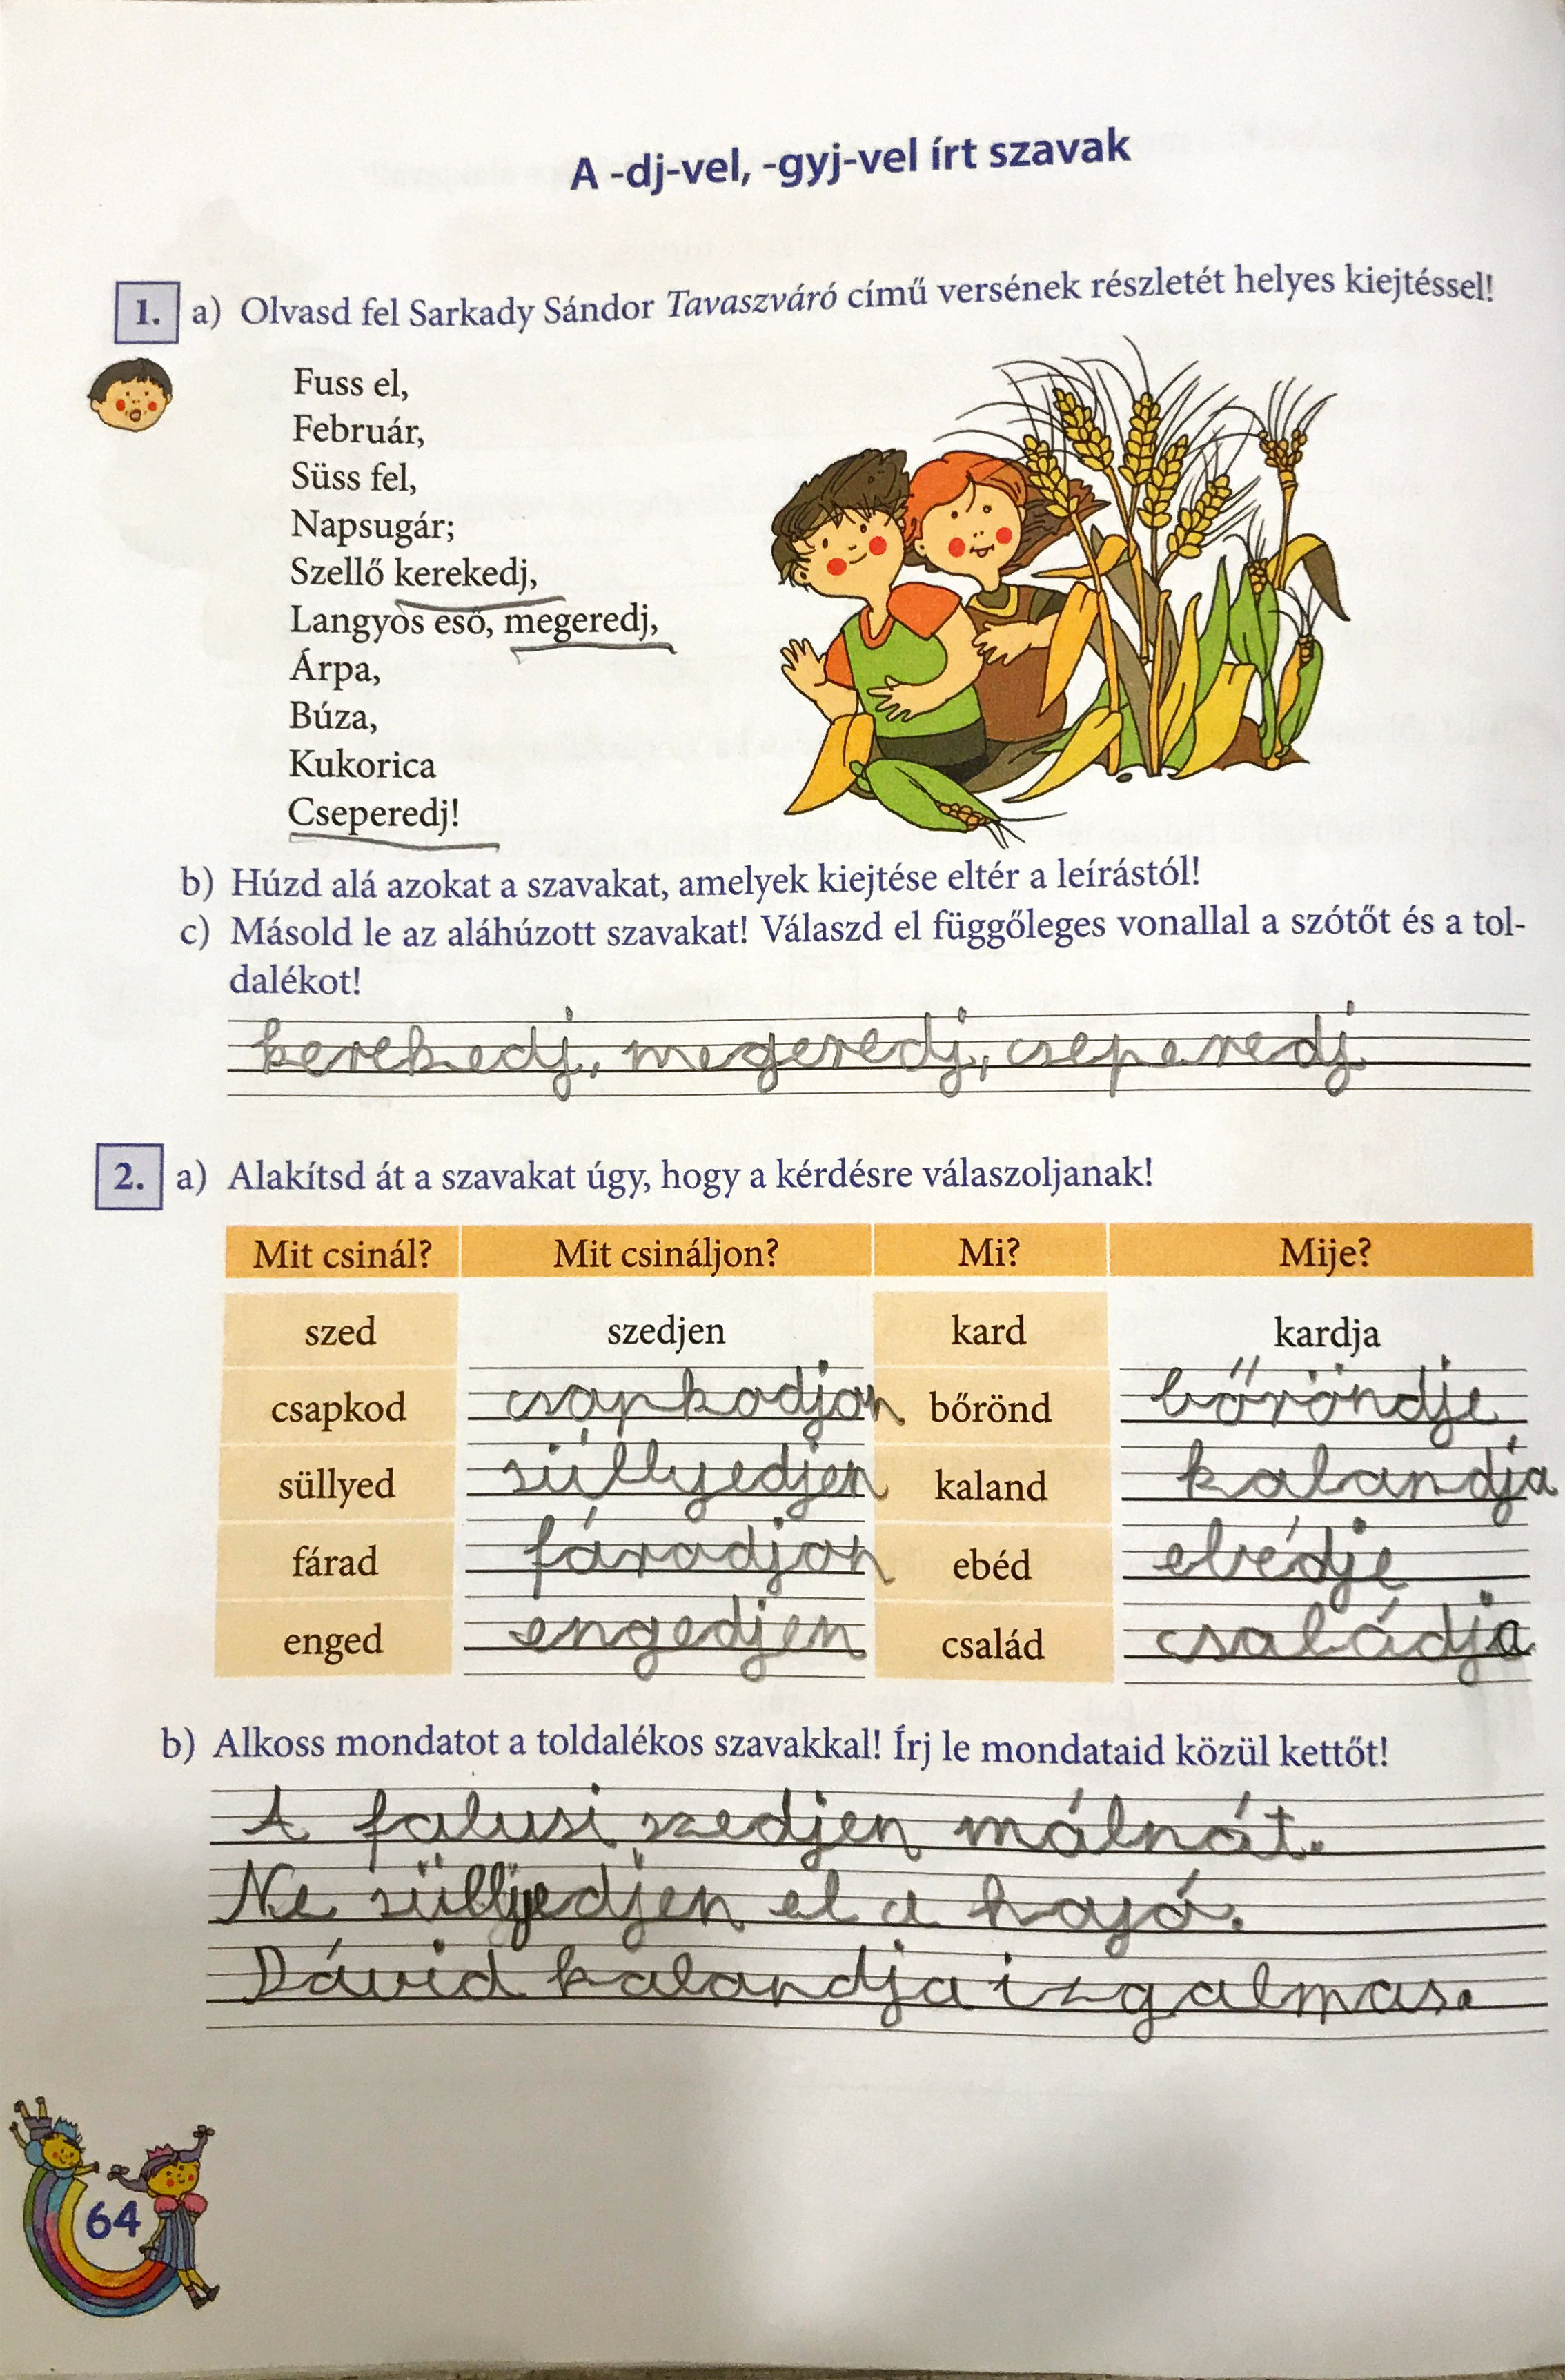 A -dj-vel, -gyj-vel írt szavak
1. a) Olvasd fel Sarkady Sándor Tavaszváró című versének részletét helyes kiejtéssel!
Fuss el,
Február,
Süss fel,
Napsugár;
Szellő kerekedj,
Langyos eső, megeredj,
Árpa,
Búza,
Kukorica
Cseperedj!
b) Húzd alá azokat a szavakat, amelyek kiejtése eltér a leírástól!
c) Másold le az aláhúzott szavakat! Válaszd el függőleges vonallal a szótőt és a tol-
dalékot!
kerekedj, megeredj, cseperedj
2. a) Alakítsd át a szavakat úgy, hogy a kérdésre válaszoljanak!
Mit csinál? Mit csináljon? Mi? Mije?
szed szedjen kard kardja
csapkod csapkodjon bőrönd bőröndje
süllyed süllyedjen kaland kalandja
fárad fáradjon ebéd ebédje
enged engedjen család családja
b) Alkoss mondatot a toldalékos szavakkal! Írj le mondataid közül kettőt!
A falusi szedjen málnát.
Ne süllyedjen el a hajó.
Dávid kalandja izgalmas.
64